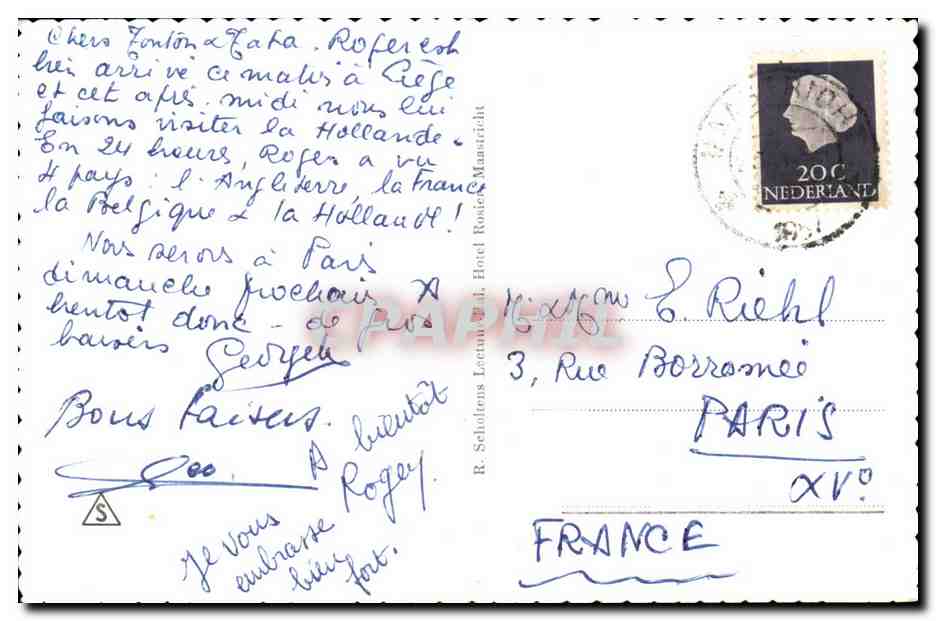 Chers Tonton & Tata. Roger est
bien arrivé ce matin à Liège
et cet après-midi nous lui
faisons visiter la Hollande.
En 24 heures, Roger a vu
4 pays : l'Angleterre, la France
la Belgique & la Hollande !
Nous serons à Paris
dimanche prochain. A
bientot donc - de gros
baisers
Bons baisers.
A bientôt
Roger.
Je vous
embrasse
bien
fort.
S
R. Scholtens Lactum Ltd. Hotel Rosier Maastricht
20 C
NEDERLAND
M. & Mme E. Riehl
3, Rue Borromée
PARIS
XVº
FRANCE
PAPHIL